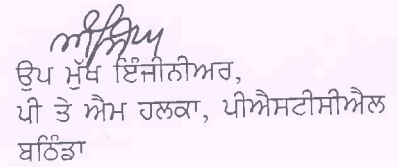 ਉਪ ਮੁੱਖ ਇੰਜੀਨੀਅਰ,
ਪੀ ਤੇ ਐਮ ਹਲਕਾ, ਪੀਐਸਟੀਸੀਐਲ
ਬਠਿੰਡਾ